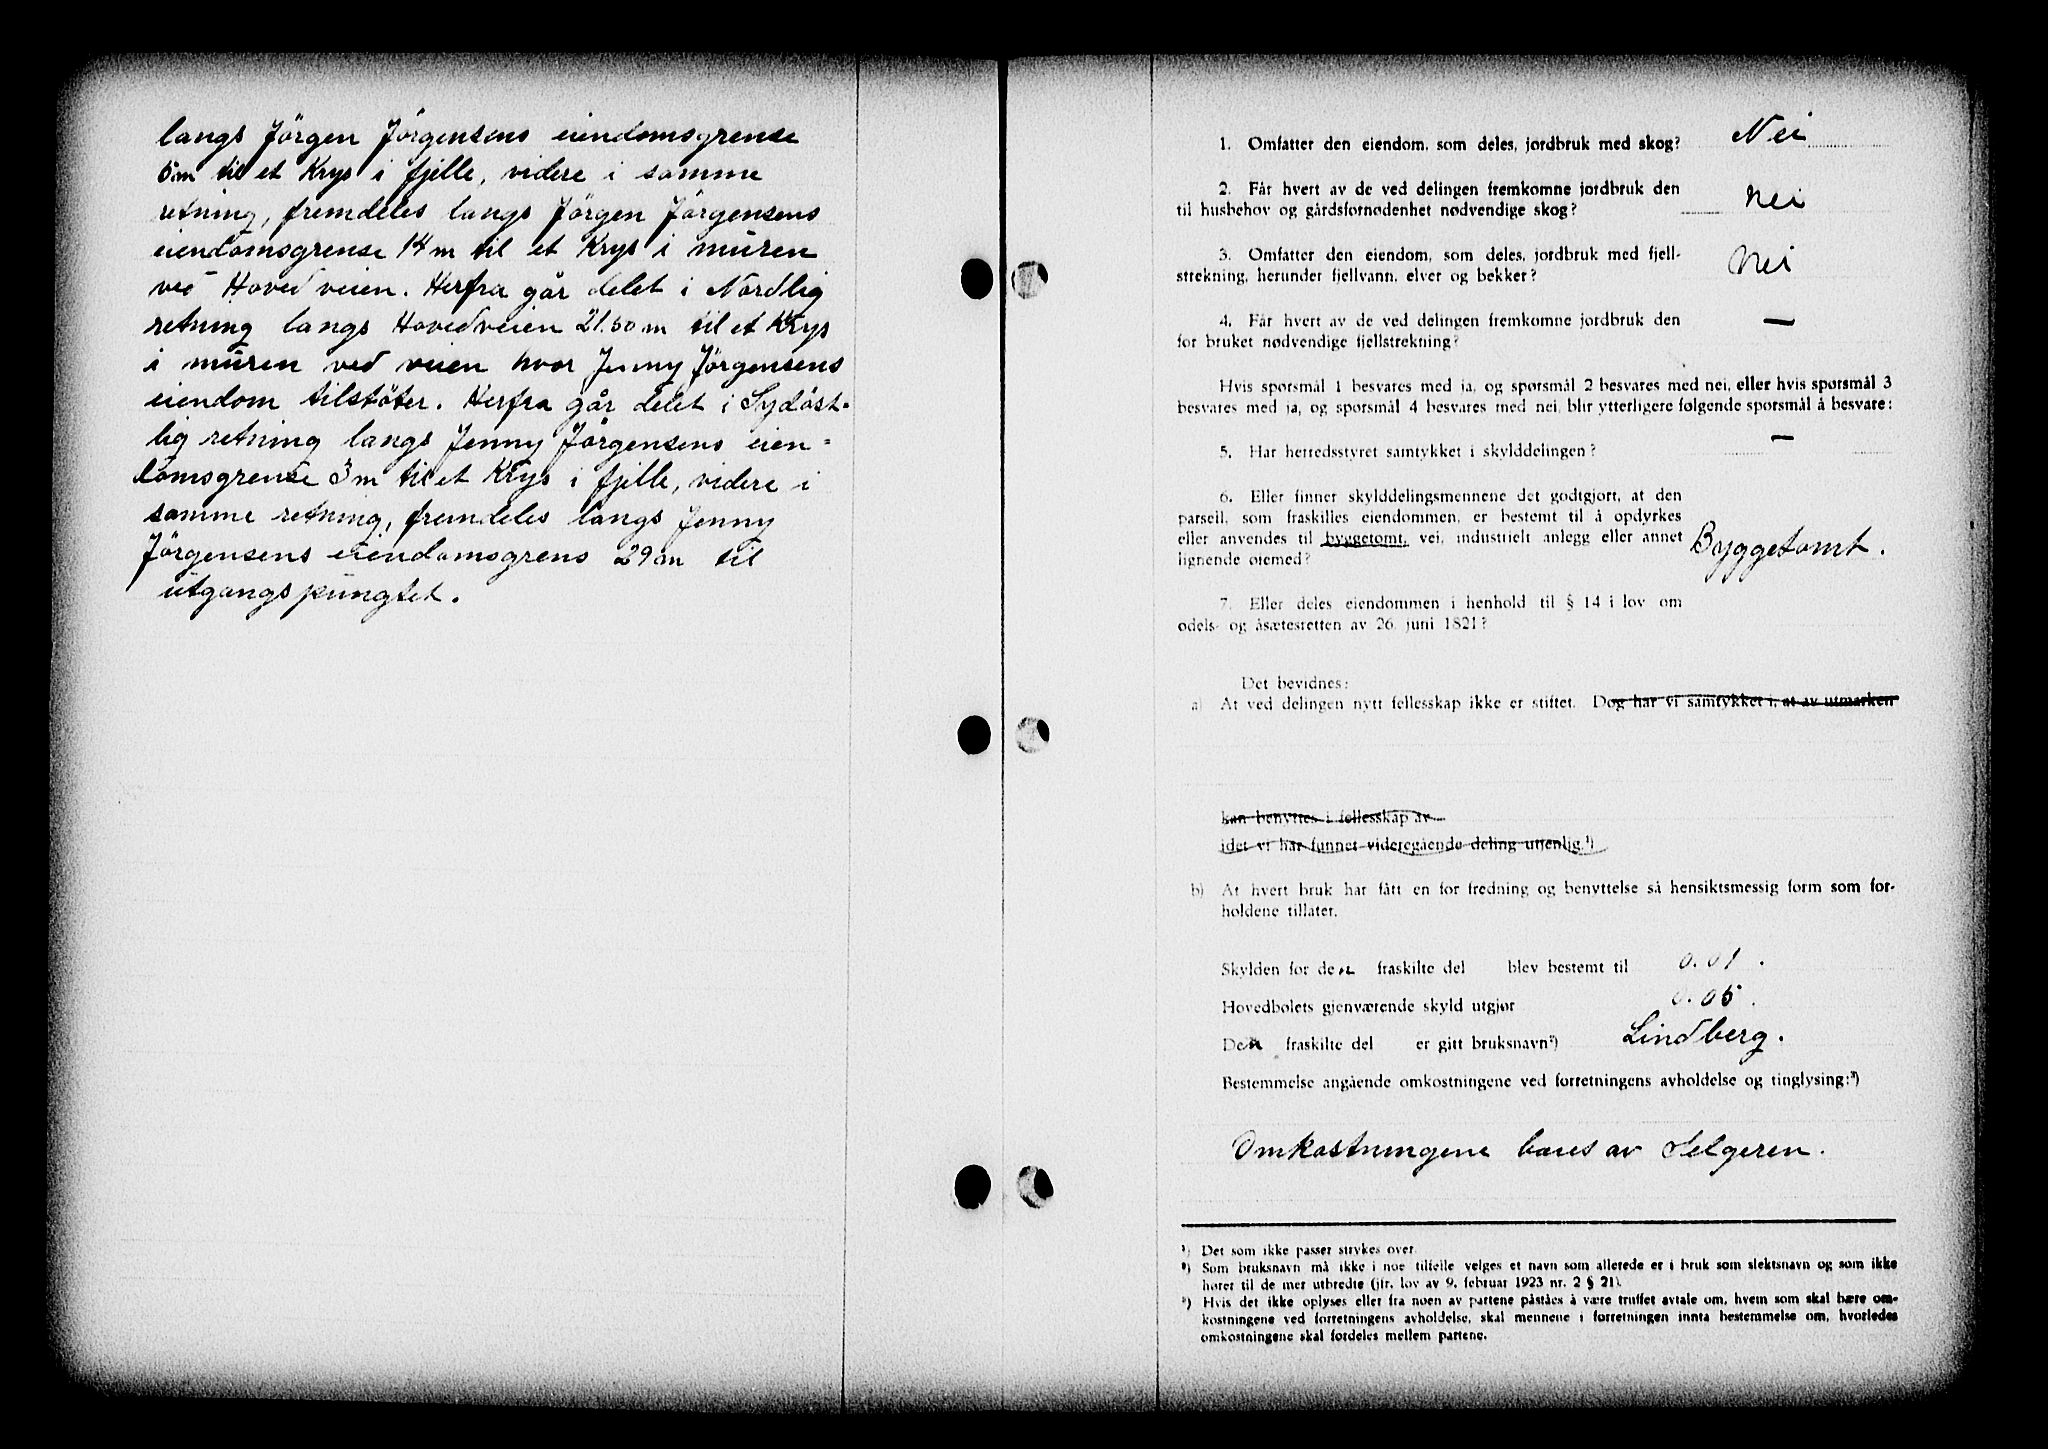 langs Jörgen Jörgensens eiendomsgrense
5m til et Krys i fjelle, videre i samme
retning, fremdeles langs Jörgen Jörgensens
eiendomsgrense 14 m til et Krys i muren
ved Hovedveien. Herfra går delet i Nordlig
retning langs Hovedveien 21.50 m til et Krys
i muren ved veien hvor Jenny Jörgensens
eiendom tilstöter. Herfra går delet i Sydöst-
lig retning langs Jenny Jörgensens eien=
domsgrense 3 m til et Krys i fjelle, videre i
samme retning, fremdeles langs Jenny
Jörgensens eiendomsgrens 29 m til
utgangspungtet.
1. Omfatter den eiendom, som deles, jordbruk med skog? Nei
2. Får hvert av de ved delingen fremkomne jordbruk den
til husbehov og gårdsfornødenhet nødvendige skog? Nei
3. Omfatter den eiendom, som deles, jordbruk med fjell-
strekning, herunder fjellvann, elver og bekker? Nei
4. Får hvert av de ved delingen fremkomne jordbruk den —
for bruket nødvendige fjellstrekning?
Hvis spørsmål 1 besvares med ja, og spørsmål 2 besvares med nei, eller hvis spørsmål 3
besvares med ja, og spørsmål 4 besvares med nei, blir ytterligere følgende spørsmål å besvare:
5. Har herredsstyret samtykket i skylddelingen? —
6. Eller finner skylddelingsmennene det godtgjort, at den
parsell, som fraskilles eiendommen, er bestemt til å opdyrkes
eller anvendes til byggetomt, vei, industrielt anlegg eller annet Byggetomt.
lignende øiemed?
7. Eller deles eiendommen i henhold til § 14 i lov om
odels- og åsætesretten av 26. juni 1821?
Det bevidnes:
a) At ved delingen nytt fellesskap ikke er stiftet. Dog har vi samtykket i, at av utmarken
kan benyttes i fellesskap av
idet vi har funnet videregående deling utjenlig.¹)
b) At hvert bruk har fått en for fredning og benyttelse så hensiktsmessig form som for-
holdene tillater.
Skylden for den fraskilte del blev bestemt til 0.01.
Hovedbølets gjenværende skyld utgjør 0.05.
Den fraskilte del er gitt bruksnavn²) Lindberg.
Bestemmelse angående omkostningene ved forretningens avholdelse og tinglysing:³)
Omkostningene bæres av Selgeren.
¹) Det som ikke passer strykes over.
²) Som bruksnavn må ikke i noe tilfelle velges et navn som allerede er i bruk som slektsnavn og som ikke
hører til de mer utbredte (jfr. lov av 9. februar 1923 nr. 2 § 21).
³) Hvis det ikke oplyses eller fra noen av partene påståes å være truffet avtale om, hvem som skal bære om-
kostningene ved forretningens avholdelse, skal mennene i forretningen innta bestemmelse om, hvorledes
omkostningene skal fordeles mellem partene.